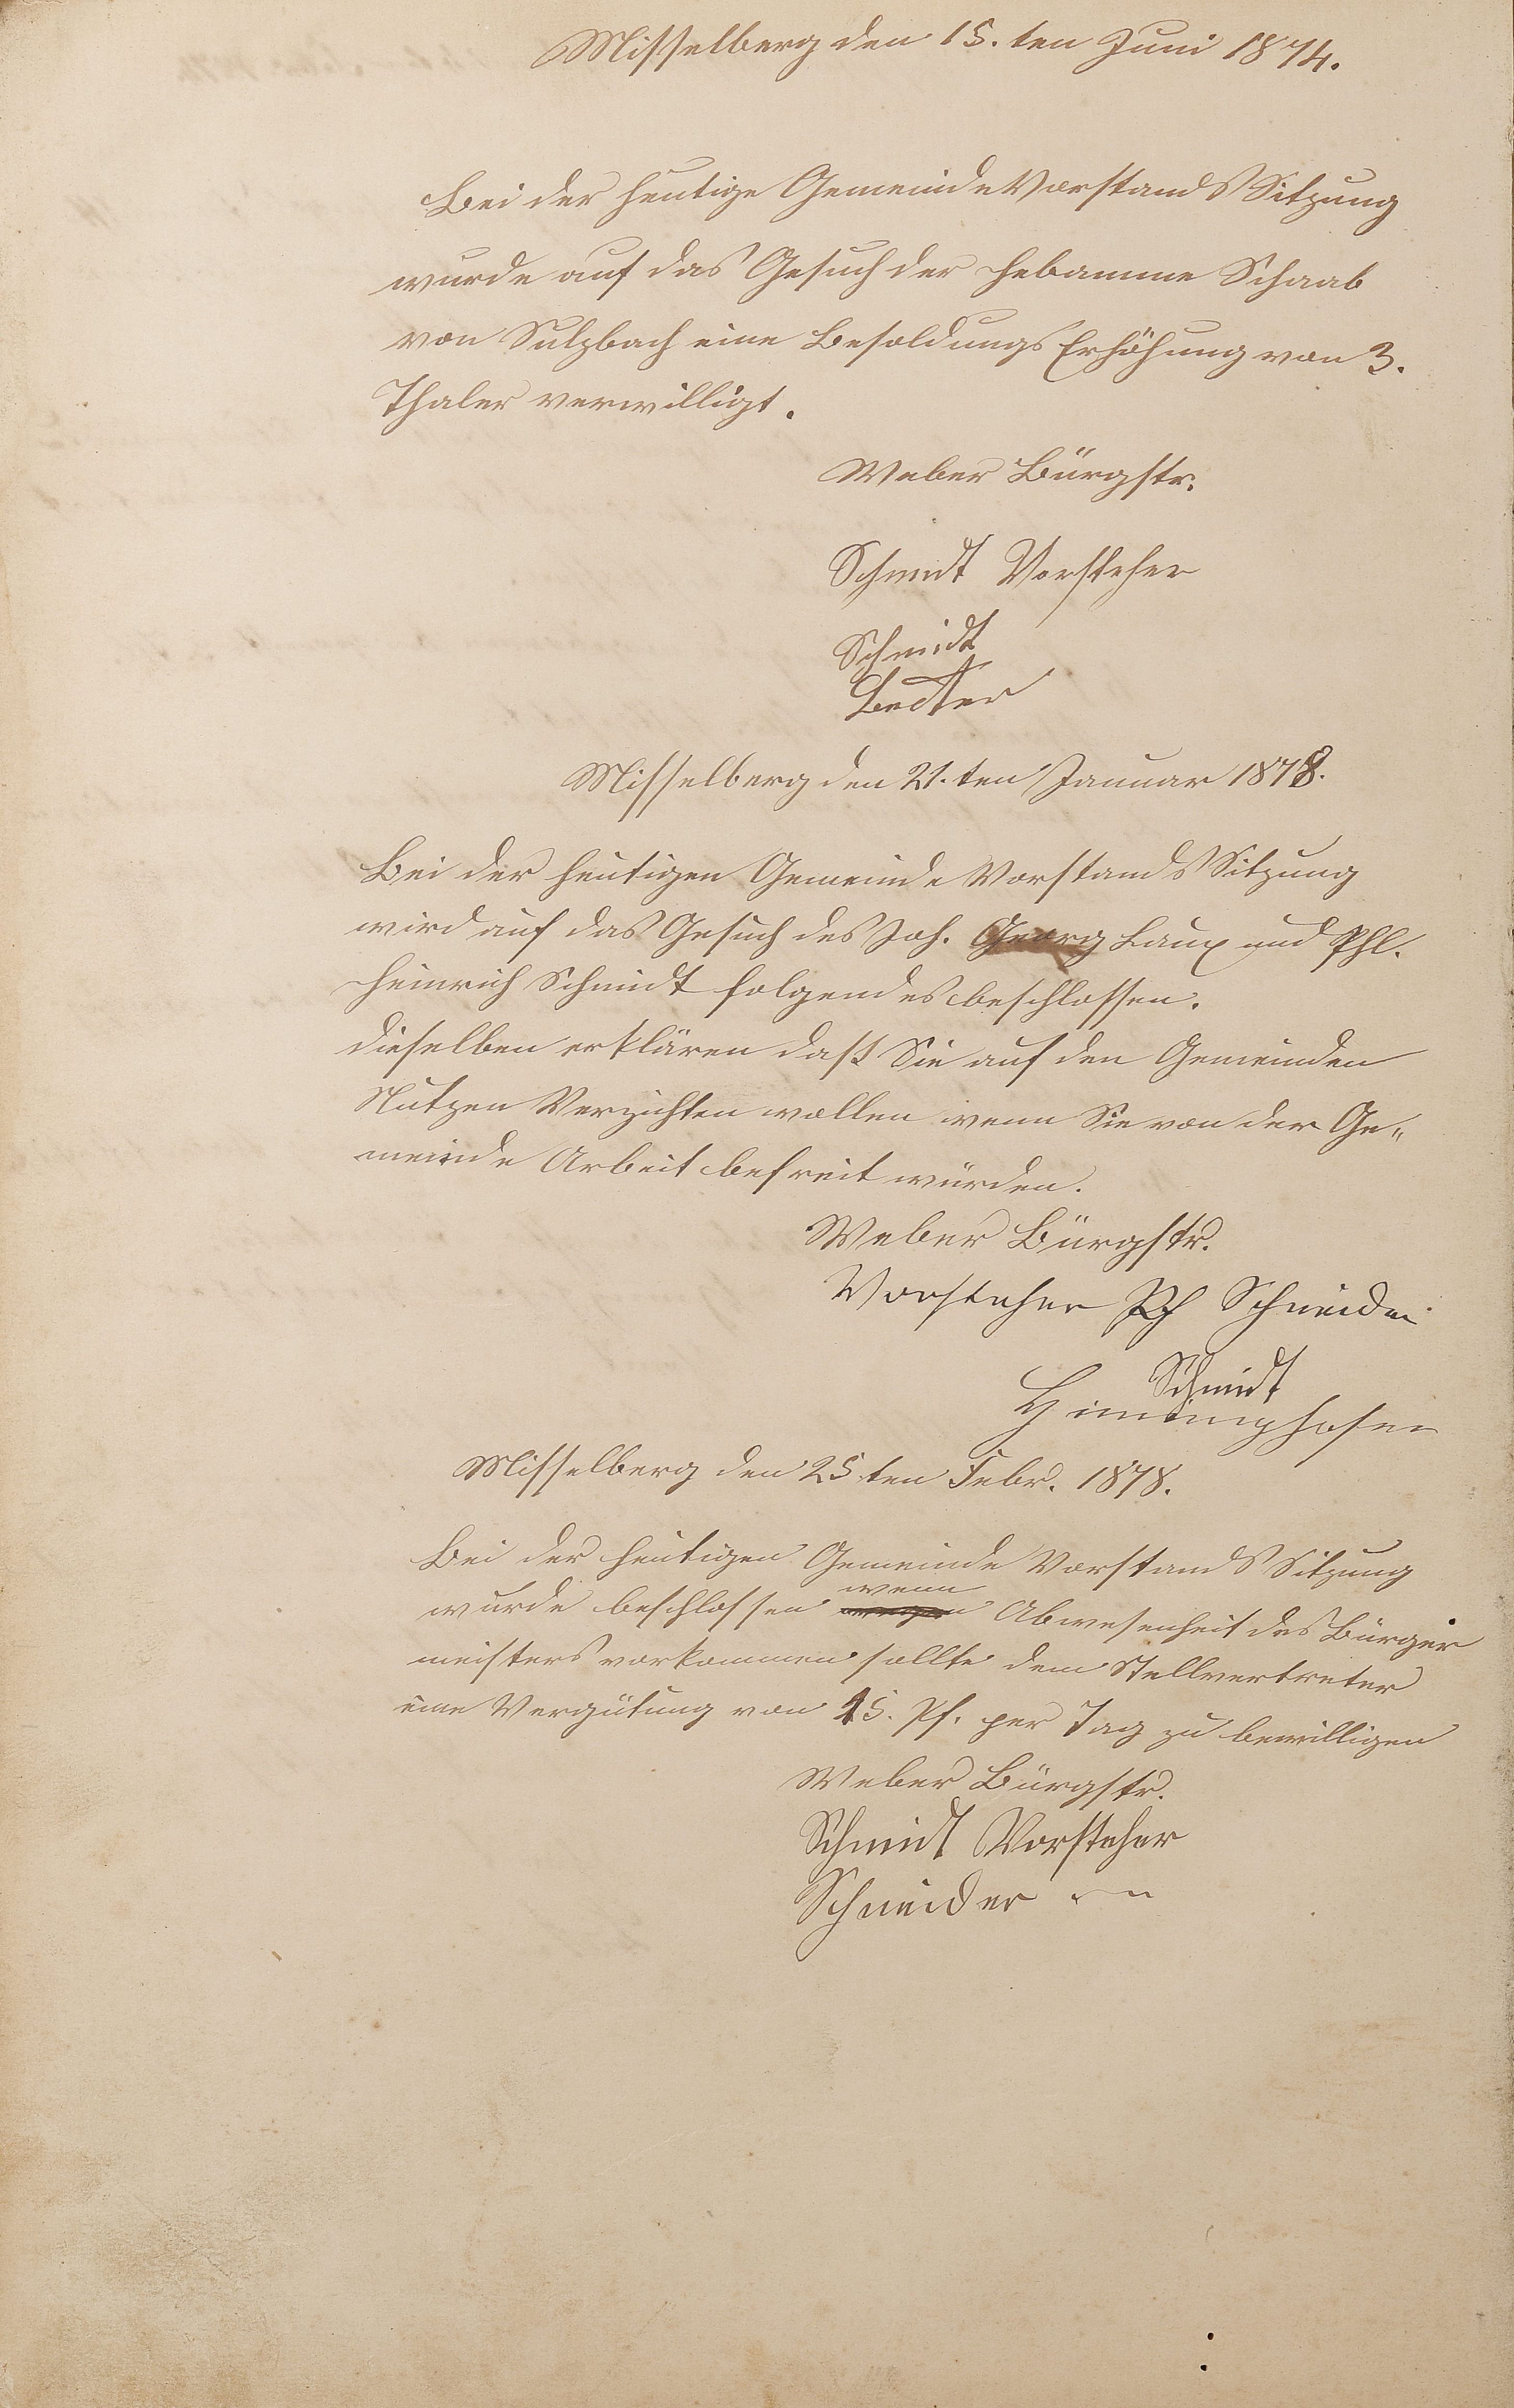 Misselberg den 15.ten Juni 1874.
Bei der heutige Gemeinde Vorstands Sitzung
wurde auf das Gesuch der Hebamme Schaab
von Sulzbach eine Besoldungs Erhöhung von 3.
Thaler verwilligt.
Weber Bürgstr.
Schmidt Vorsteher
Schmidt
Misselberg den 21.ten Januar 1878.
Bei der heutigen Gemeinde Vorstands Sitzung
wird auf das Gesuch des Joh. Georg Laux und Phl.
Heinrich Schmidt folgendes beschlossen.
dieselben erklären daß Sie auf den Gemeinden
Nutzen Verzichten wollen wenn Sie von der Ge„
meinde Arbeit befreit würden.
Weber Bürgstr.
Vorsteher Ph Schneider
Schmidt
Misselberg den 25ten Febr. 1878.
Bei der heutigen Gemeinde Vorstands Sitzung
wurde beschlossen wenn Abwesenheit des Bürger
meisters vorkommen sollte dem Stellvertreter
eine Vergütung von 15. Pf. per Tag zu bewilligen
Weber Bürgstr.
Schmidt Vorsteher
Schneider